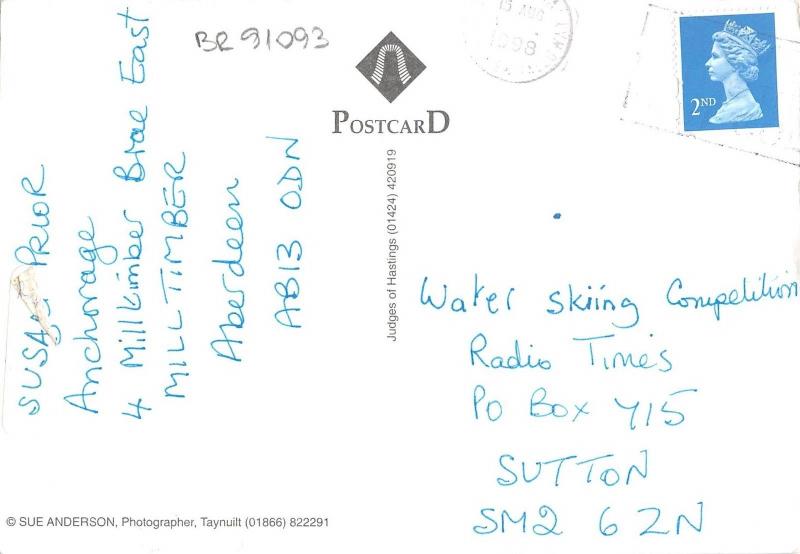 BR 91093
POSTCARD
15 AUG
1998
2ND
SUSAN PRIOR
Anchorage
4 Milltimber Brae East
MILLTIMBER
Aberdeen
AB13 0DN
Judges of Hastings (01424) 420919
Water skiing Competition
Radio Times
PO Box Y15
SUTTON
SM2 6ZN
© SUE ANDERSON, Photographer, Taynuilt (01866) 822291